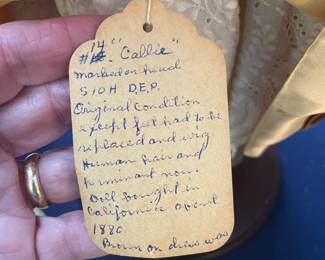 14 "
#15. "Callie"
marked on head
S10H D.E.P.
Original condition
except feet had to be
replaced and wig.
Human hair and
perminant now.
Doll bought in
California about
1880
Brown on dress was